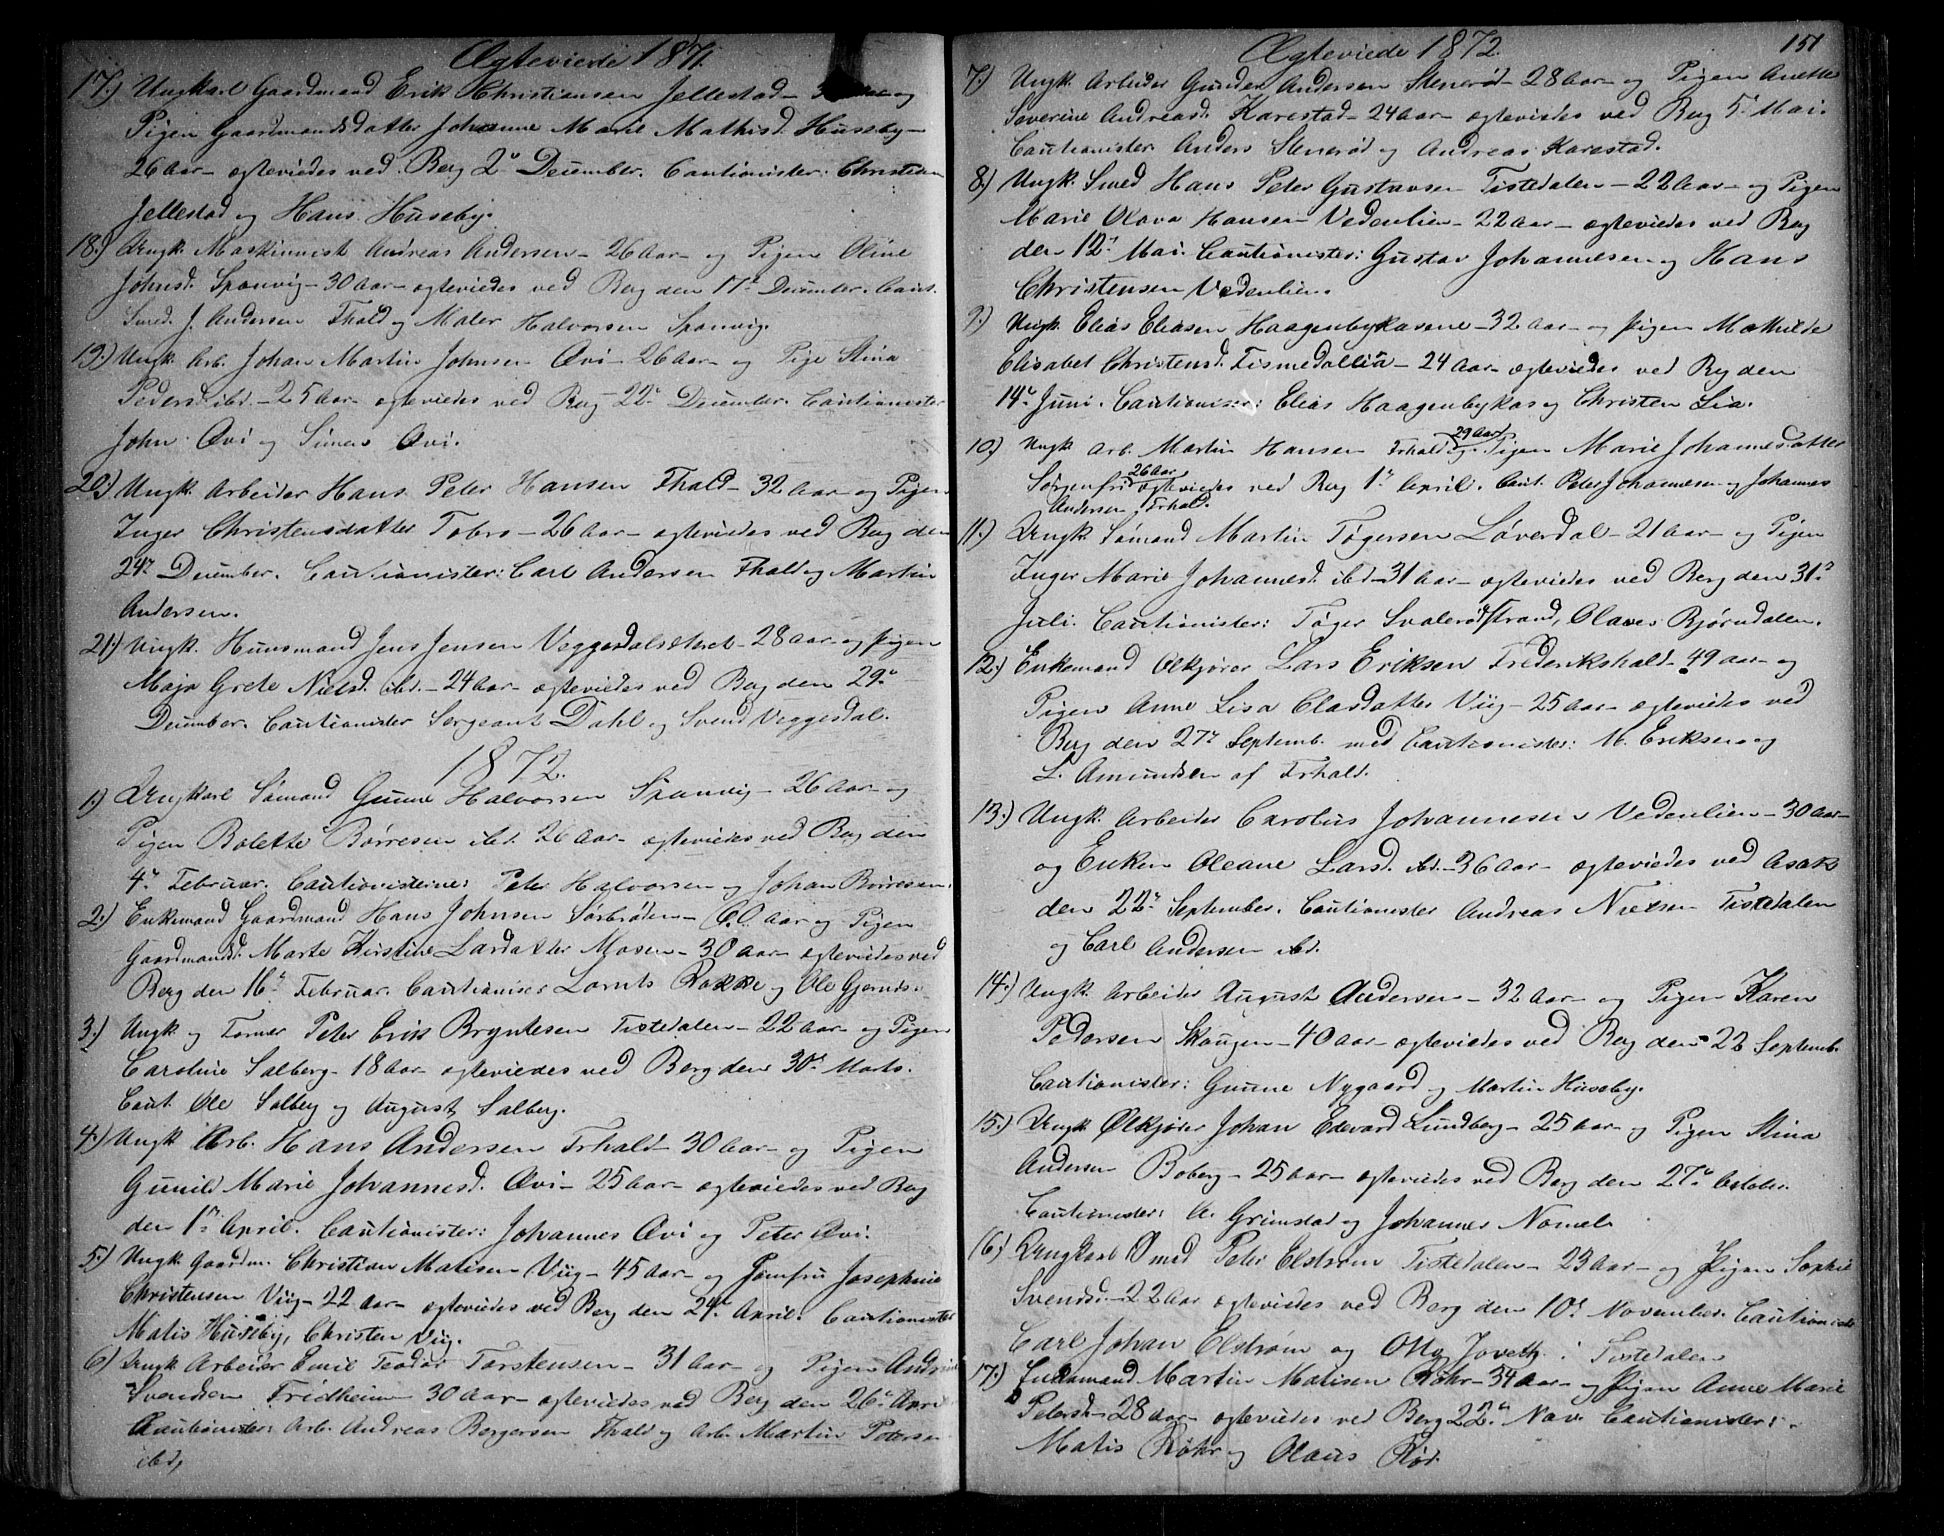 Ægteviede 1871.
17.) Ungkarl Gaardmand Erik Christiansen Jellestad - og
Pigen Gaardmandsdatter Johanne Marie Mathisd. Husseby -
26 Aar - ægteviedes ved Berg 2den December. Cautionister: Christian
Jellestad og Hans Huseby.
18.) Ungk. Maskinnist Andreas Andersen - 26 Aar - og Pigen Oline
Johnsd. Sponvig - 30 Aar - ægteviedes ved Berg den 17de December. Caut.
Smed. J. Andersen Fhald og Maler Halvorsen Sponvig.
19.) Ungk. Arb. Johan Martin Johnsen Øvi - 26 Aar - og Pige Stina
Pedersd. ibd. - 25 Aar - ægteviedes ved Berg - 22de December. Cautionister
John Øvi og Simen Øvi.
20.) Ungk. Arbeider Hans Peter Hansen Fhald - 32 Aar - og Pigen
Inger Christensdatter Tobro - 26 Aar - ægteviedes ved Berg den
24de December. Cautionister: Carl Andersen Fhald og Martin
Andersen.
21.) Ungk. Huusmand Jens Jensen Veggesdalsletet - 28 Aar - og Pigen
Maja Grete Nielsd. ibd. - 24 Aar - ægteviedes ved Berg den 29de
December. Cautionister Sergeant Dahl og Svend Veggesdal.
1872.
1.) Ungkarl Sømand Gunne Halvorsen Sponvig - 26 Aar - og
Pigen Bolette Børresen ibd. 26 Aar - ægteviedes ved Berg den
4de Februar. Cautionisterne: Peter Halvorsen og Johan Børresen.
2.) Enkemand Gaardmand Hans Johnsen Sørbrøden - 60 Aar og Pigen
Gaardmandsd. Marte Kirstine Larsdatter Mosen - 30 Aar - ægteviedes ved
Berg den 16de Februar. Cautionister Lornts Rokke og Ole Gjernds.
3.) Ungk. og Former Peter Erik Bryntesen Tistedalen - 22 Aar - og Pigen
Caroline Solberg - 18 Aar - ægteviedes ved Berg den 30te Marts.
Caut. Ole Solberg og August Solberg.
4.) Ungk. Arb. Hans Andersen Frhald - 30 Aar - og Pigen
Gunild Marie Johannesd. Øvi - 25 Aar - ægteviedes ved Berg
den 1ste April. Cautionister: Johannes Øvi og Peter Øvi.
5.) Ungk. Gaardm. Christian Matisen Viig - 45 Aar - og Jomfru Josephine
Christensen Viig - 22 Aar - ægteviedes ved Berg den 24de April. Cautionister
Matis Huseby, Christen Viig.
6.) Ungk. Arbeider Emil Teodor Torstensen - 31 Aar - og Pigen
Svendsen Fridheim 30 Aar - ægteviedes ved Berg den 26de April
Cautionister: Arb. Andreas Børgersen Fhald og Arb. Martin Petersen
ibd.
Ægteviede 1872. 151
7.) Ungk. Arbeider Gunder Andersen Stenerød - 28 Aar - og Pigen Anette
Severine Andreasd. Karestad - 24 Aar - ægteviedes ved Berg 5te Mai.
Cautionister Anders Stenerød og Andreas Karestad.
8.) Ungk. Smed Hans Peter Gustavsen Tistedalen - 22 Aar - og Pigen
Marie Olava Hansen Vedenlien - 22 Aar - ægteviedes ved Berg
den 12te Mai. Cautionister: Gustav Johannesen og Hans
Christensen Vedenlien.
9.) Ungk. Elias Eliasen Haagenbykasene - 32 Aar - og Pigen Mathilde
Elisabet Christensd. Tismedallia - 24 Aar - ægteviedes ved Berg den
14de Juni. Cautionister: Elias Haagenbykas og Christen Lia.
10.) Ungk. Arb. Martin Hansen Frhald 29 Aar og Pigen Marie Johannesdatter
Sorgenfri 26 Aar ægteviedes ved Berg 1ste April. Caut. Peter Johannesen og Johannes
Andersen Frhald.
11.) Ungk. Sømand Martin Tøgersen Løverdal - 21 Aar - og Pigen
Inger Marie Johannesd. ibd - 31 Aar - ægteviedes ved Berg den 31te
Juli. Cautionister: Tøger Svalerødstrand, Olaves Bjørndalen.
12.) Enkemand Ølkjører Lars Eriksen Frederikshald - 49 Aar - og
Pigen Anne Lisa Clasdatter Viig - 25 Aar - ægteviedes ved
Berg den 27de Septemb. med Cautionister: N. Eriksen og
L. Amundsen af Frhald.
13.) Ungk. Arbeider Carolus Johannesen Vedenlien - 30 Aar -
og Enken Oleane Larsd. ibd. - 36 Aar - ægteviedes ved Asak
den 22de September. Cautionister Andreas Nielsen Tistedalen
og Carl Andersen ibd.
14.) Ungk. Arbeider August Andersen - 32 Aar - og Pigen Karen
Pedersen Skougen - 40 Aar - ægteviedes ved Berg den 22 Septemb.
Cautionister: Gunne Nygaard og Martin Huseby.
15.) Ungk. Ølkjører Johan Edevard Lundberg - 25 Aar - og Pigen Stina
Andersen Boberg - 25 Aar - ægteviedes ved Berg den 27de October.
Cautionister: A. Grimstad og Johannes Nomel.
16.) Ungkarl Smed Peter Elstrøm Tistedalen - 23 Aar - og Pigen Sophie
Svendsd. - 22 Aar ægteviedes ved Berg den 10de November. Cautionister
Carl Johan Elstrøm og Otto i Tistedalen
17.) Enkemand Martin Matisen Røhr - 34 Aar - og Pigen Anne Marie
Petersd. - 28 Aar - ægteviedes ved Berg 22de Nov. Cautionister:
Matis Røhr og Olaus Rød.